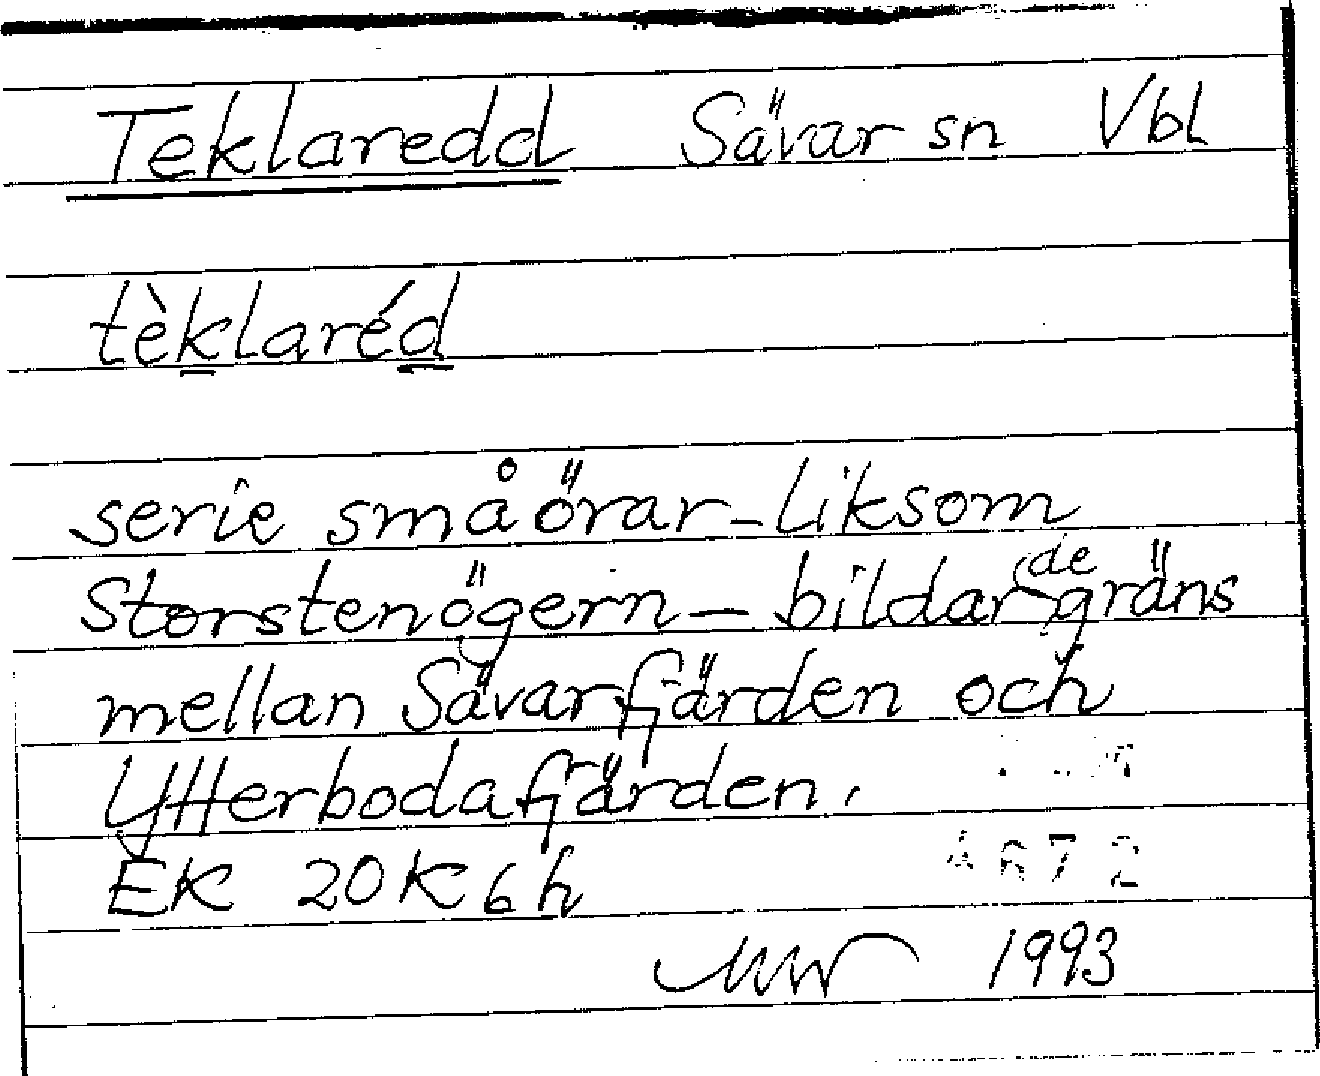 Teklaredd Sävar sn Vbl
tèklaréd
serie små örar - liksom
Storstenögern - bildar(de gräns
mellan Sävarfjärden och
Ytterbodafjärden.
EK 20K6h
4672
1993